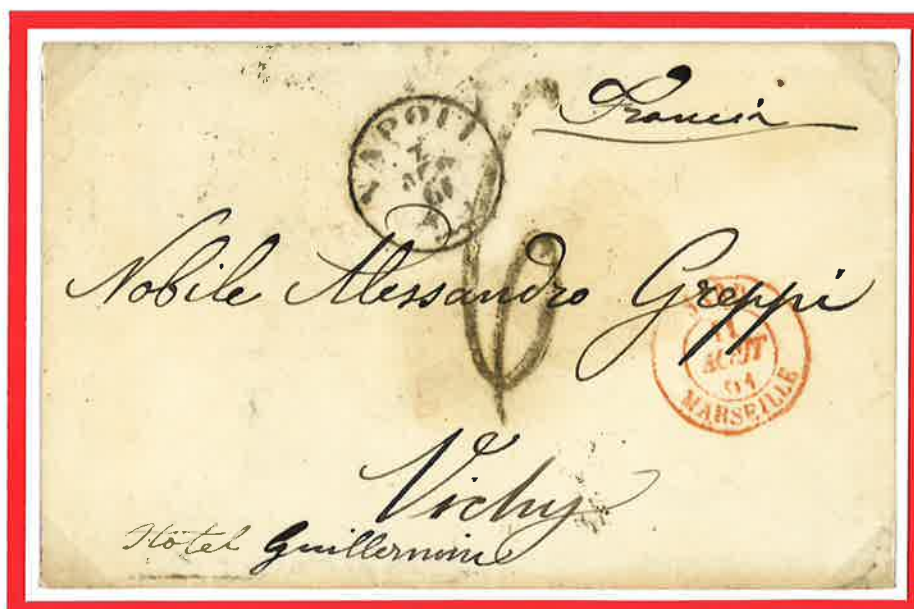 Francia
NAPOLI
7
AGO
61
Nobile Alessandro Greppi
11
AOUT
61
MARSEILLE
Vichy
Hôtel Guillermin